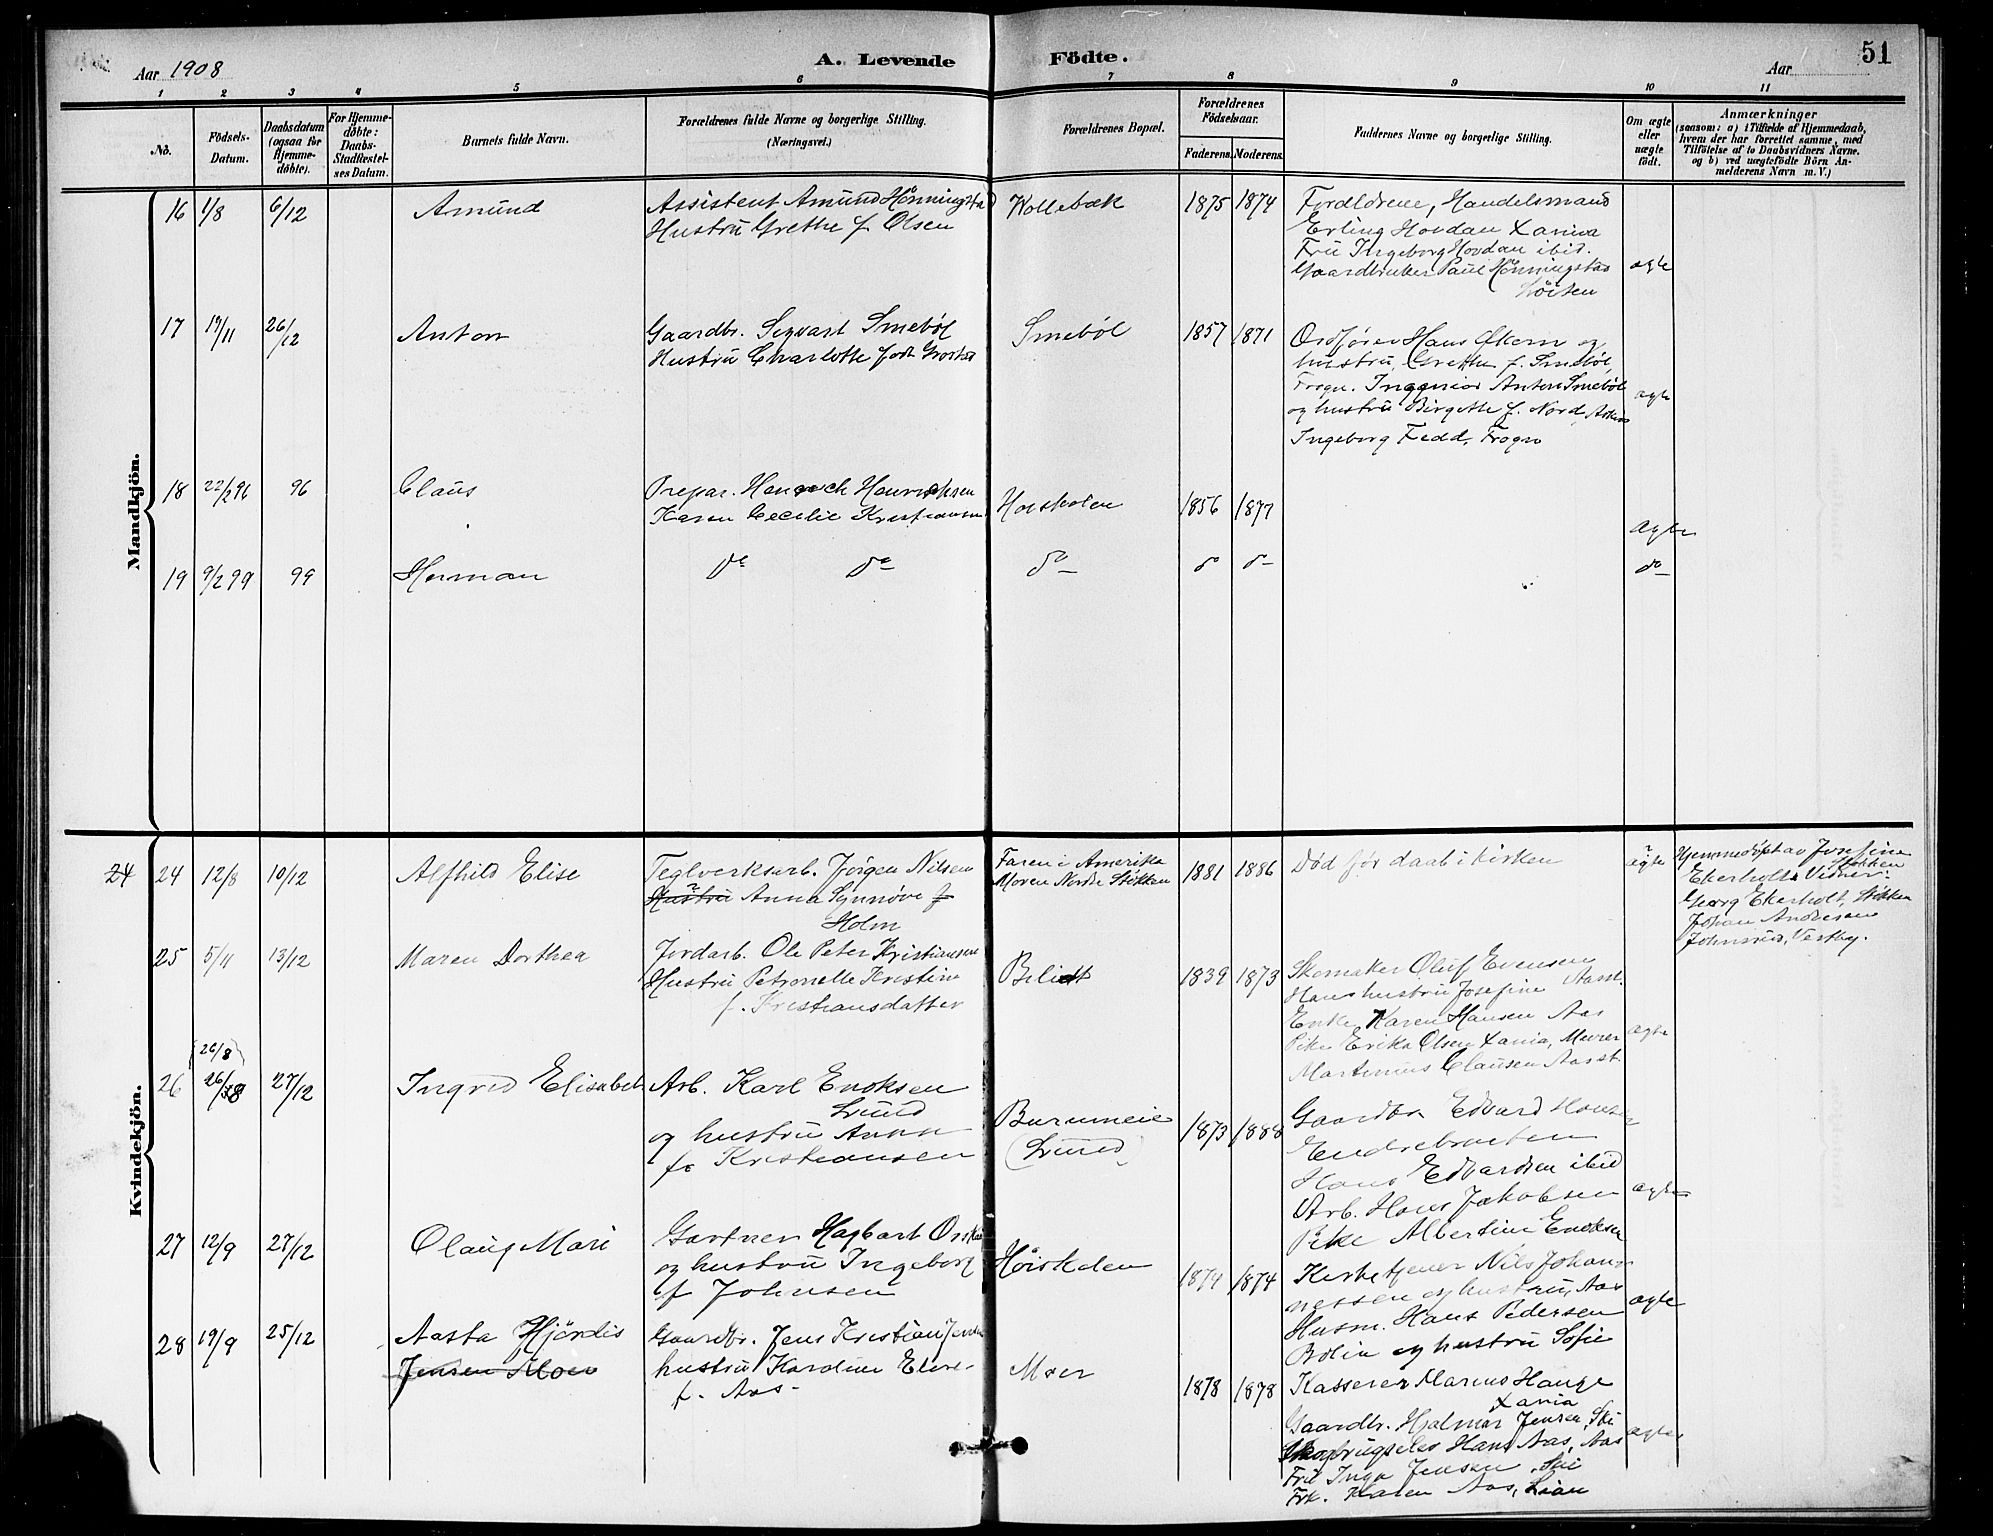 Aar 1908
A. Levende Födte.
Aar
51
1 2 3 4 5 6 7 8 9 10 11
No.
Födsels-Datum.
Daabsdatum (ogsaa for Hjemme-døbte).
For Hjemme-døbte: Daabs-Stadfæstel-ses Datum.
Barnets fulde Navn.
Forældrenes fulde Navne og borgerlige Stilling.
(Næringsvei.)
Forældrenes Bopæl.
Forældrenes Födselsaar.
Faderens. Moderens.
Faddernes Navne og borgerlige Stilling.
Om ægte eller uægte födt.
Anmærkninger
(saasom: a) i Tilfælde af Hjemmedaab,
hvem der har forrettet samme, med
Tilföielse af to Daabsvidners Navne.
og b) ved uægtefödte Börn An-
melderens Navn m. V.)
Mandkjön.
16 1/8 6/12 Amund
Assistent Amund Hönningstad
Hustru Grethe f Olsen
Kollebæk 1875 1874
Forældrene, Handelsmand
Erling Hovdan Xania
Fru Ingeborg Hovdan ibid.
Gaardbruker Paul Hönningstad
Löiten
ægte
17 19/11 26/12 Anton
Gaardbr. Sigvart Smebøl
Hustru Charlotte født
Smebøl 1857 1871
Ordfører Hans Økern og
hustru Grethe f. Smebøl,
Frogn. Ingeniør Anton Smebøl
og hustru Birgitte f. Nord,
Ingeborg Fedd, Frogn
ægte
18 22/2 96 96 Claus
Prepar. Henrik Henriksen
Karen Cecilie Kristiansen
1856 1877
ægte
19 9/2 99 99 Herman
do do do do do do
Kvindekjön.
24 24 12/8 10/12 Alfhild Elise
Teglverksarb. Jörgen Nilsen
Hustru Anna Synnöve f
Holm
Faren i Amerika
Moren Nordre Stökken
1881 1886
Död før daab i kirken
ægte
Hjemmedöpt av Josefine
Stökken
Ekerholt. Vidner:
Georg Ekerholt, Stökken
Johan Andresen
Johnsrud, Vestby.
25 5/11 13/12 Maren Dorthea
Jordarb. Ole Peter Kristiansen
Hustru Petronelle Kristine
f. Kristiansdatter
1839 1873
Skomaker Oluf Evensen
Hans hustru Josefine Aasst.
Enke Karen Hansen Aas
Pike Erika Olsen Xania, Murer
Martinius Clausen Aasst.
ægte
(26/8)
26 26/8 27/12 Ingrid Elisabet
Arb. Karl Enoksen
Lund
og hustru Anna
f. Kristiansen
(Lund)
1873 1888
Gaardbr Edvard Hansen
Endrebraaten
Hans Edvardsen ibid
Arb. Hans Jakobsen
Pike Albertine Enoksen
ægte
27 12/9 27/12 Olaug Mari
Gartner Hagbart
og hustru Ingeborg
f Johnsen
1874 1874
Kirketjener Nils Johan-
nessen og hustru, Aas
Husm. Hans Pedersen
Bölia og hustru Sofie
ægte
28 19/9 25/12 Aasta Hjördis
Jensen Moer
Gaardbr. Jens Kristian Jensen
hustru Karoline Elise
f. Aas
Moer 1878 1878
Kasserer Marius Hauge
Xania
Gaardbr. Hjalmar Jensen, Ski
Skogbrugselev Hans Aas, Aas
Frk Inga Jensen, Ski
Frk. Karen Aas, Lian
ægte